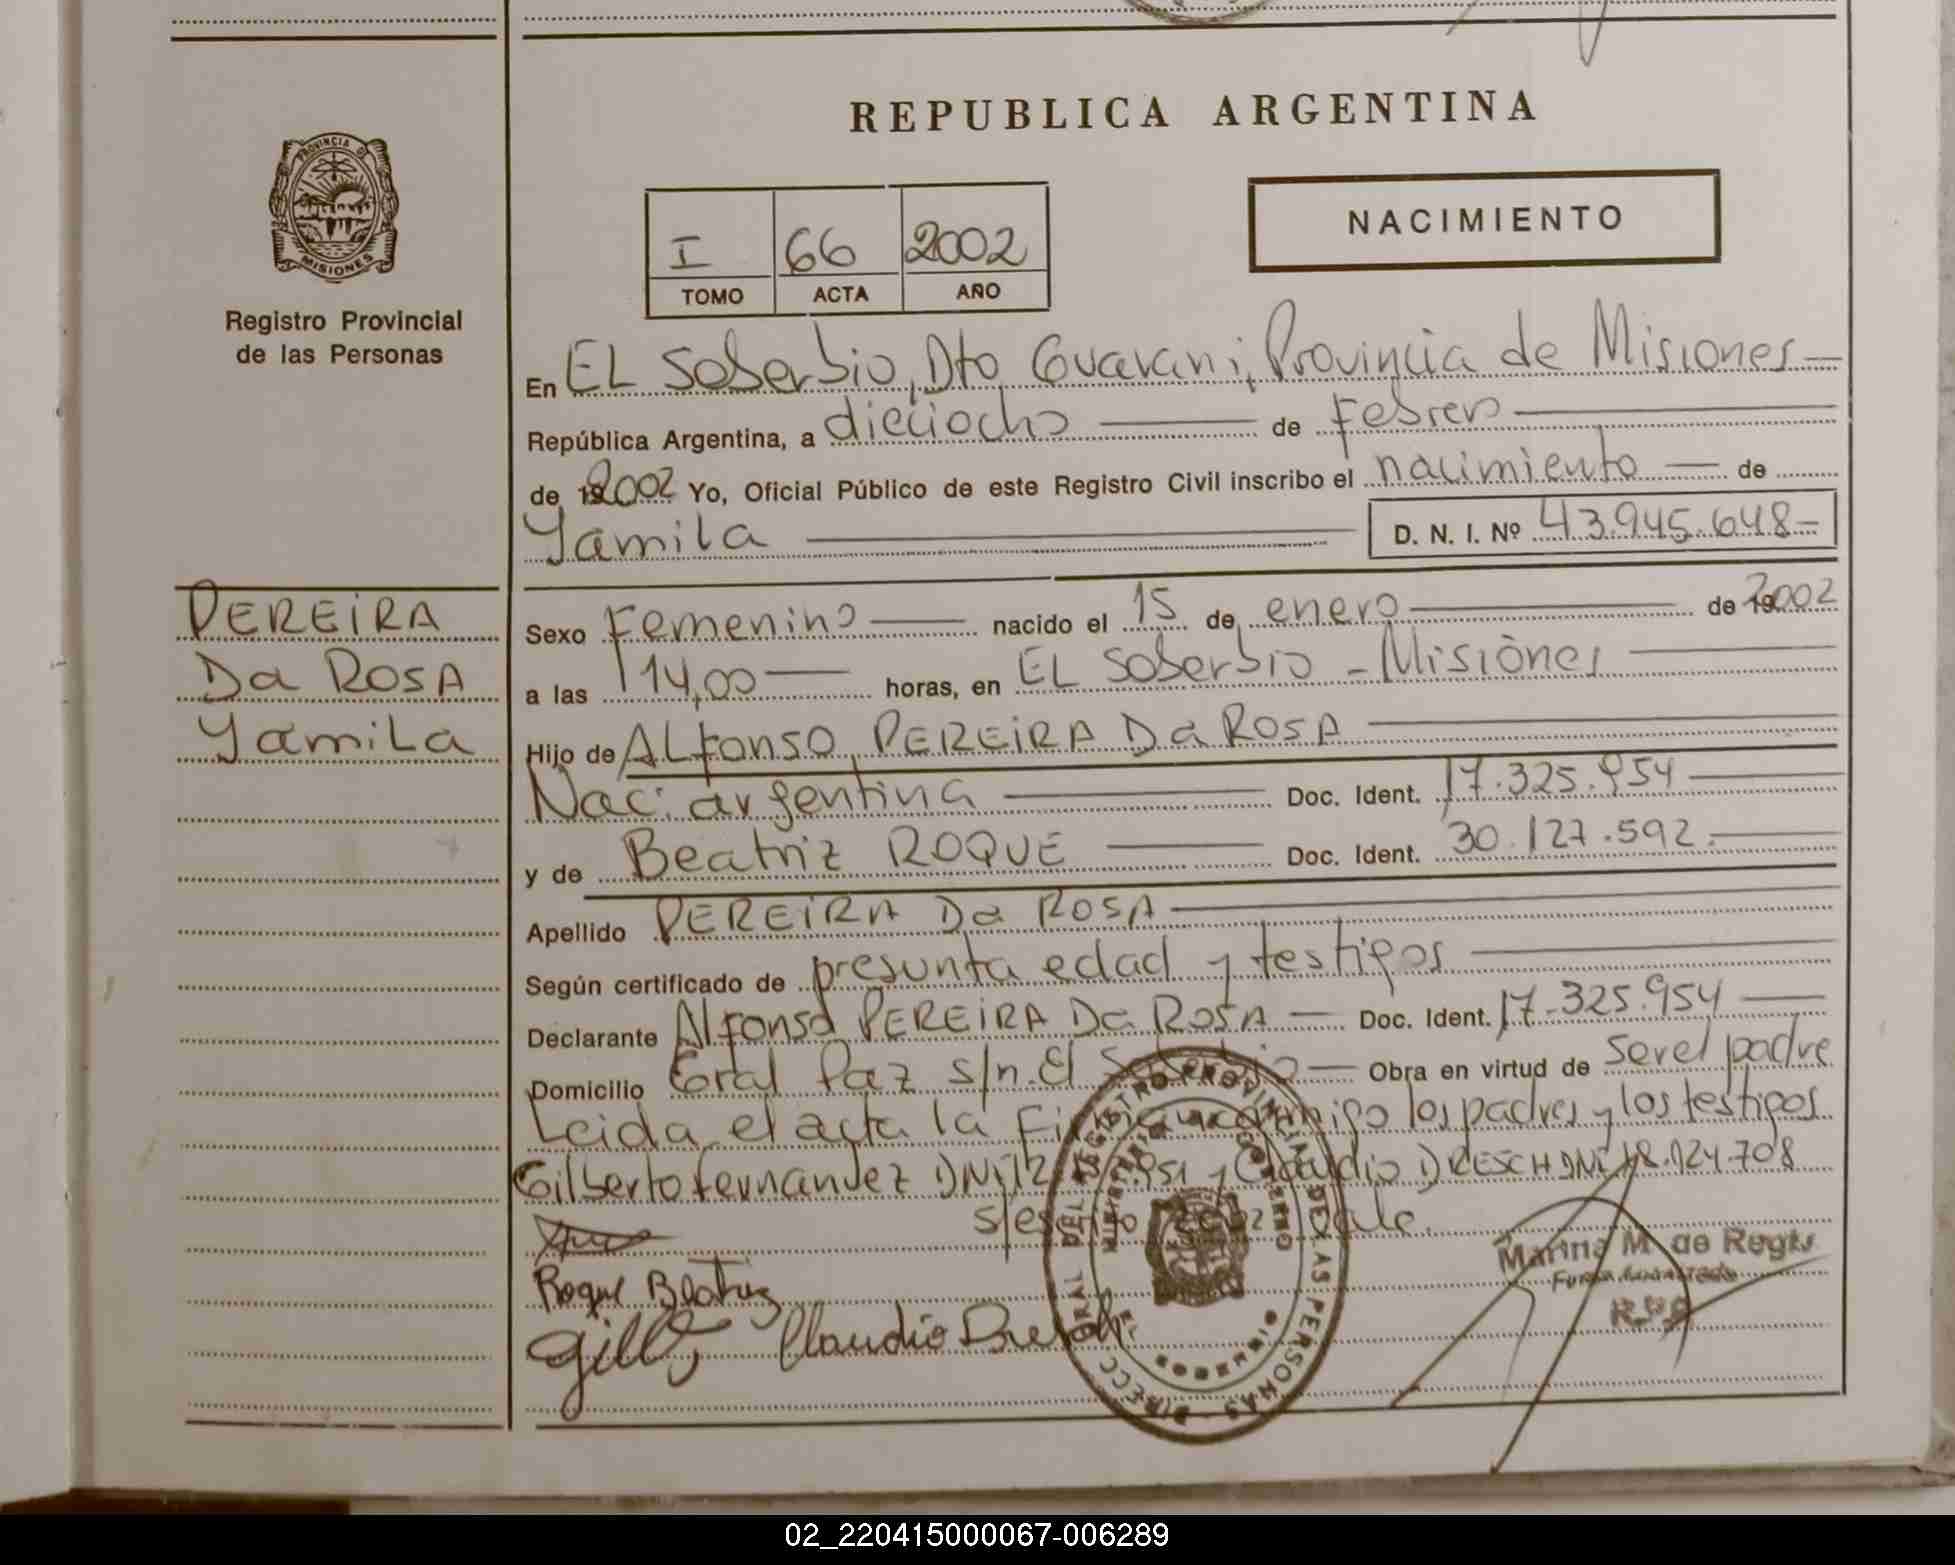 REPUBLICA ARGENTINA
PROVINCIA DE
MISIONES
Registro Provincial
de las Personas
I 66 2002
TOMO ACTA AÑO
NACIMIENTO
En EL Soberbio, Dto Guarani, Provincia de Misiones
República Argentina, a dieciocho de Febrero
de 2002 Yo, Oficial Público de este Registro Civil inscribo el nacimiento de
Yamila D. N. I. Nº 43.945.648
PEREIRA
Da ROSA
Yamila
Sexo Femenino nacido el 15 de enero de 2002
a las 14,00 horas, en EL Soberbio - Misiones
Hijo de ALfonso PEREIRA Da ROSA
Nac. argentina Doc. Ident. 17.325.954
y de Beatriz ROQUE Doc. Ident. 30.127.592
Apellido PEREIRA Da ROSA
Según certificado de presunta edad y testigos
Declarante Alfonso PEREIRA Da ROSA Doc. Ident. 17.325.954
Domicilio Gral Paz s/n. El Soberbio Obra en virtud de ser el padre
Leida el acta la conmigo los padres y los testigos
Gilberto Fernandez DNI 12 951 y Claudio DRESCH DNI 18.024.708
s/es vale.
Roque Beatriz
Claudio Dresch
Marina M. de Regis
REGISTRO PROVINCIAL DE LAS PERSONAS
02_220415000067-006289